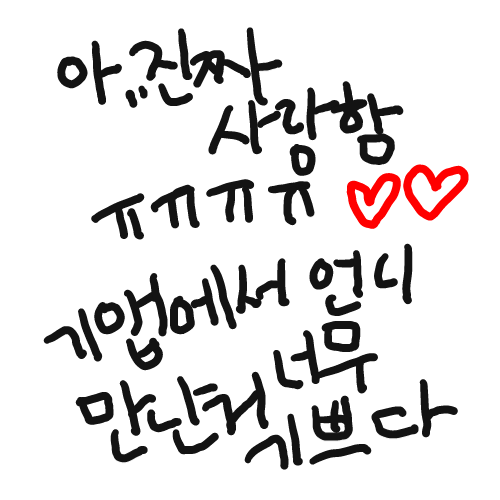 아.. 진짜
사랑함
ㅠㅠㅠㅠ ♡♡
기앱에서 언니
만난거 너무
기쁘다